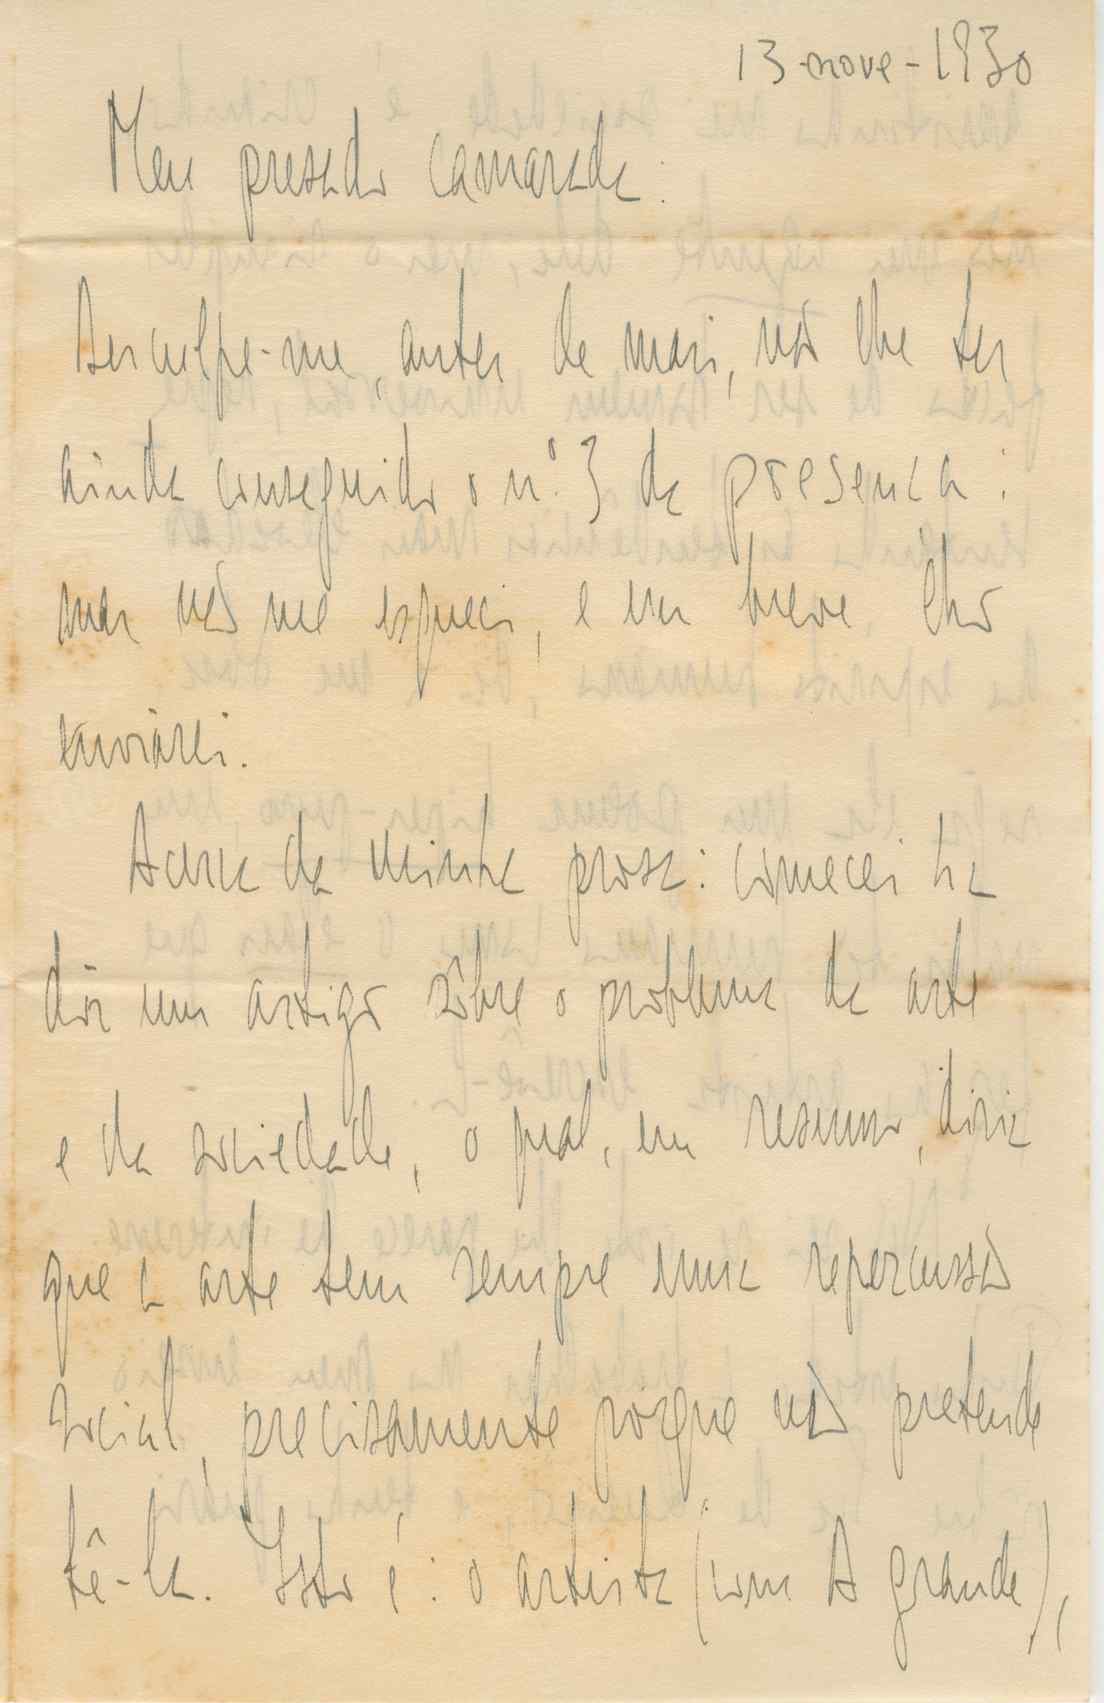 13-nove-1930
Meu presado camarada:
Desculpe-me, antes de mais, não lhe ter
ainda conseguido o nº 3 da presença:
mas não me esqueci, e em breve lho
enviarei.
Acerca da minha prosa: comecei há
dias um artigo sôbre o problema da arte
e da sociedade, o qual, em resumo, diria
que a arte tem sempre uma repercussão
social, precisamente porque não pretende
tê-la. Isto é: o artista (com A grande),